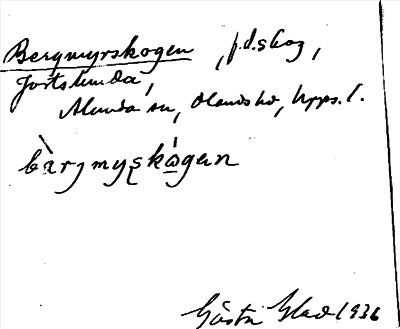 Bergmyrskogen, f.d. skog,
Jortslunda,
Alunda sn, Olands hd, Upps. l.
bàrjmyʂkɷ́gan
Gösta Glad 1936